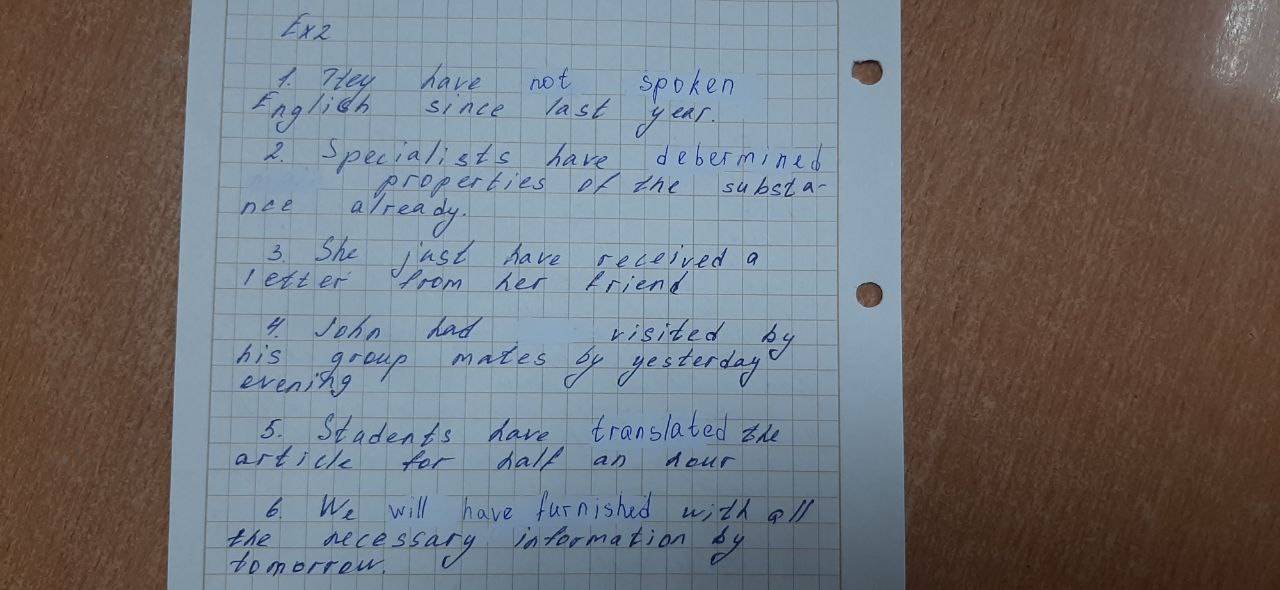 Ex2
1. They have not spoken
English since last year.
2. Specialists have debermined
properties of the substa-
nce already.
3. She just have received a
letter from her friend
4. John had visited by
his group mates by yesterday
evening
5. Students have translated the
article for half an hour
6. We will have furnished with all
the necessary information by
tomorrow.